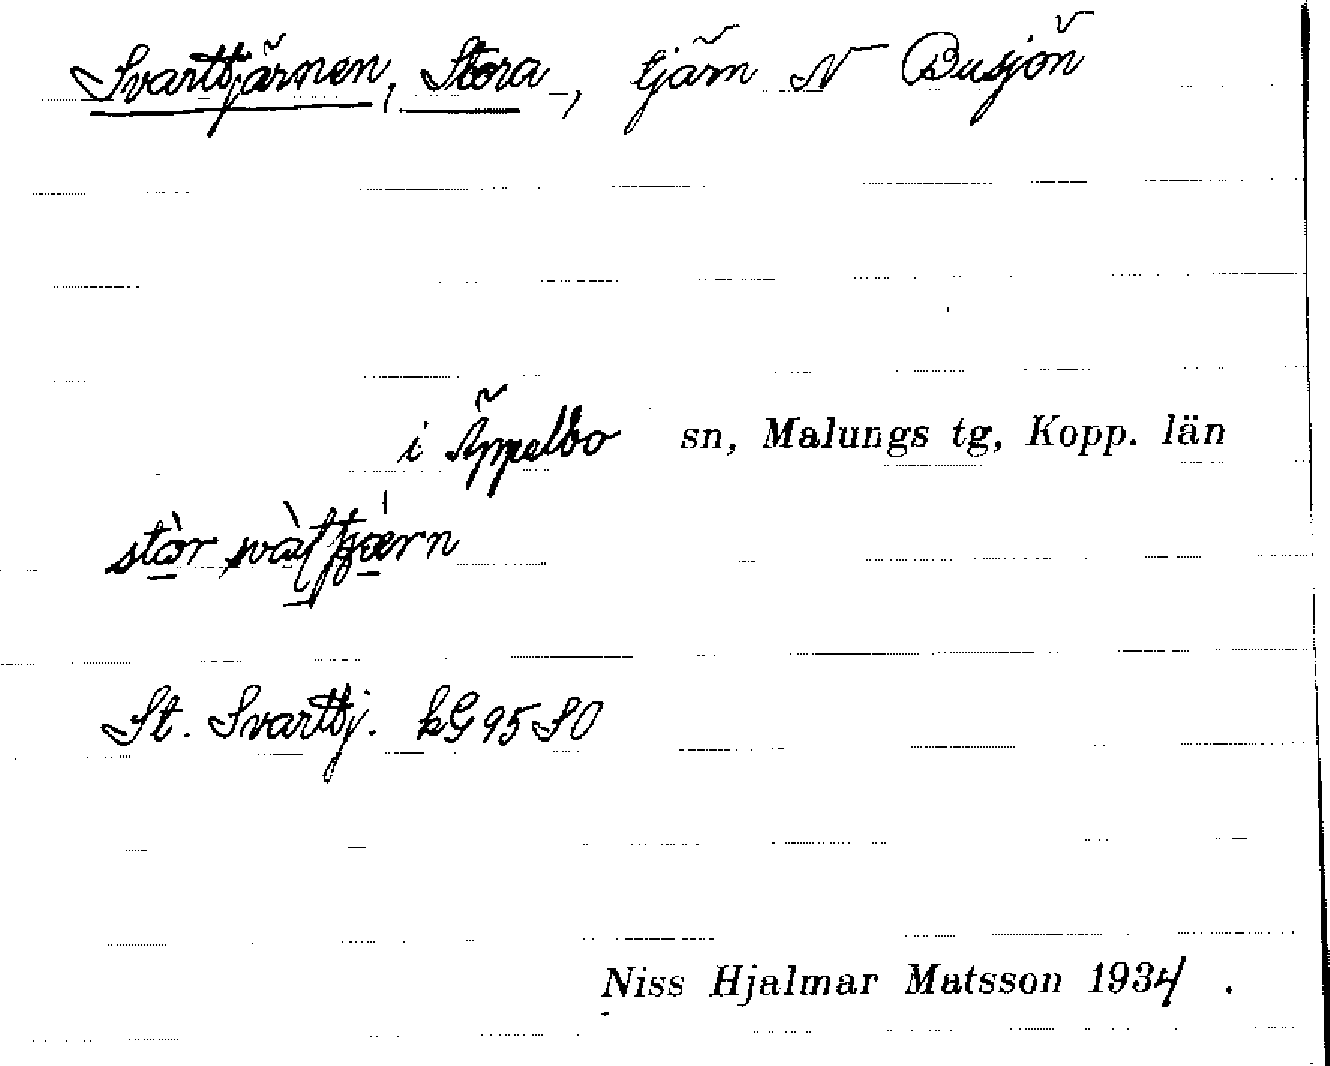 Svarttjärnen, Stora, tjärn N Busjön
i Äppelbo sn, Malungs tg, Kopp. län
stòr
St. Svarttj. kG 95 SO
Niss Hjalmar Matsson 1934.